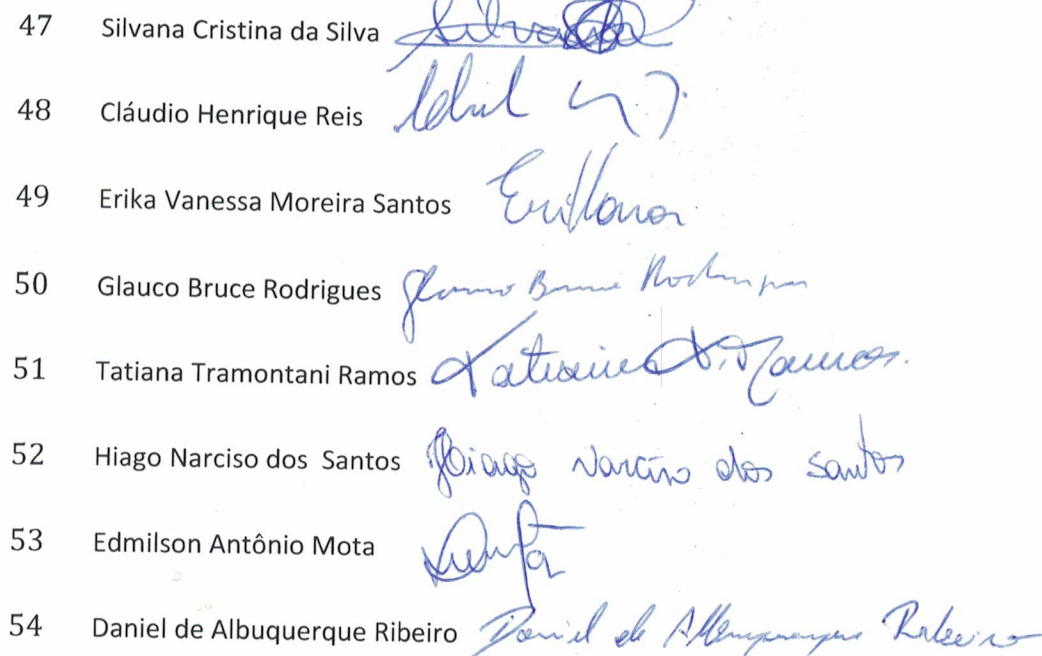 47 Silvana Cristina da Silva
48 Cláudio Henrique Reis
49 Erika Vanessa Moreira Santos
50 Glauco Bruce Rodrigues Glauco Bruce Rodrigues
51 Tatiana Tramontani Ramos Tatiana T. Ramos
52 Hiago Narciso dos Santos Hiago Narciso dos Santos
53 Edmilson Antônio Mota
54 Daniel de Albuquerque Ribeiro Daniel de Albuquerque Ribeiro